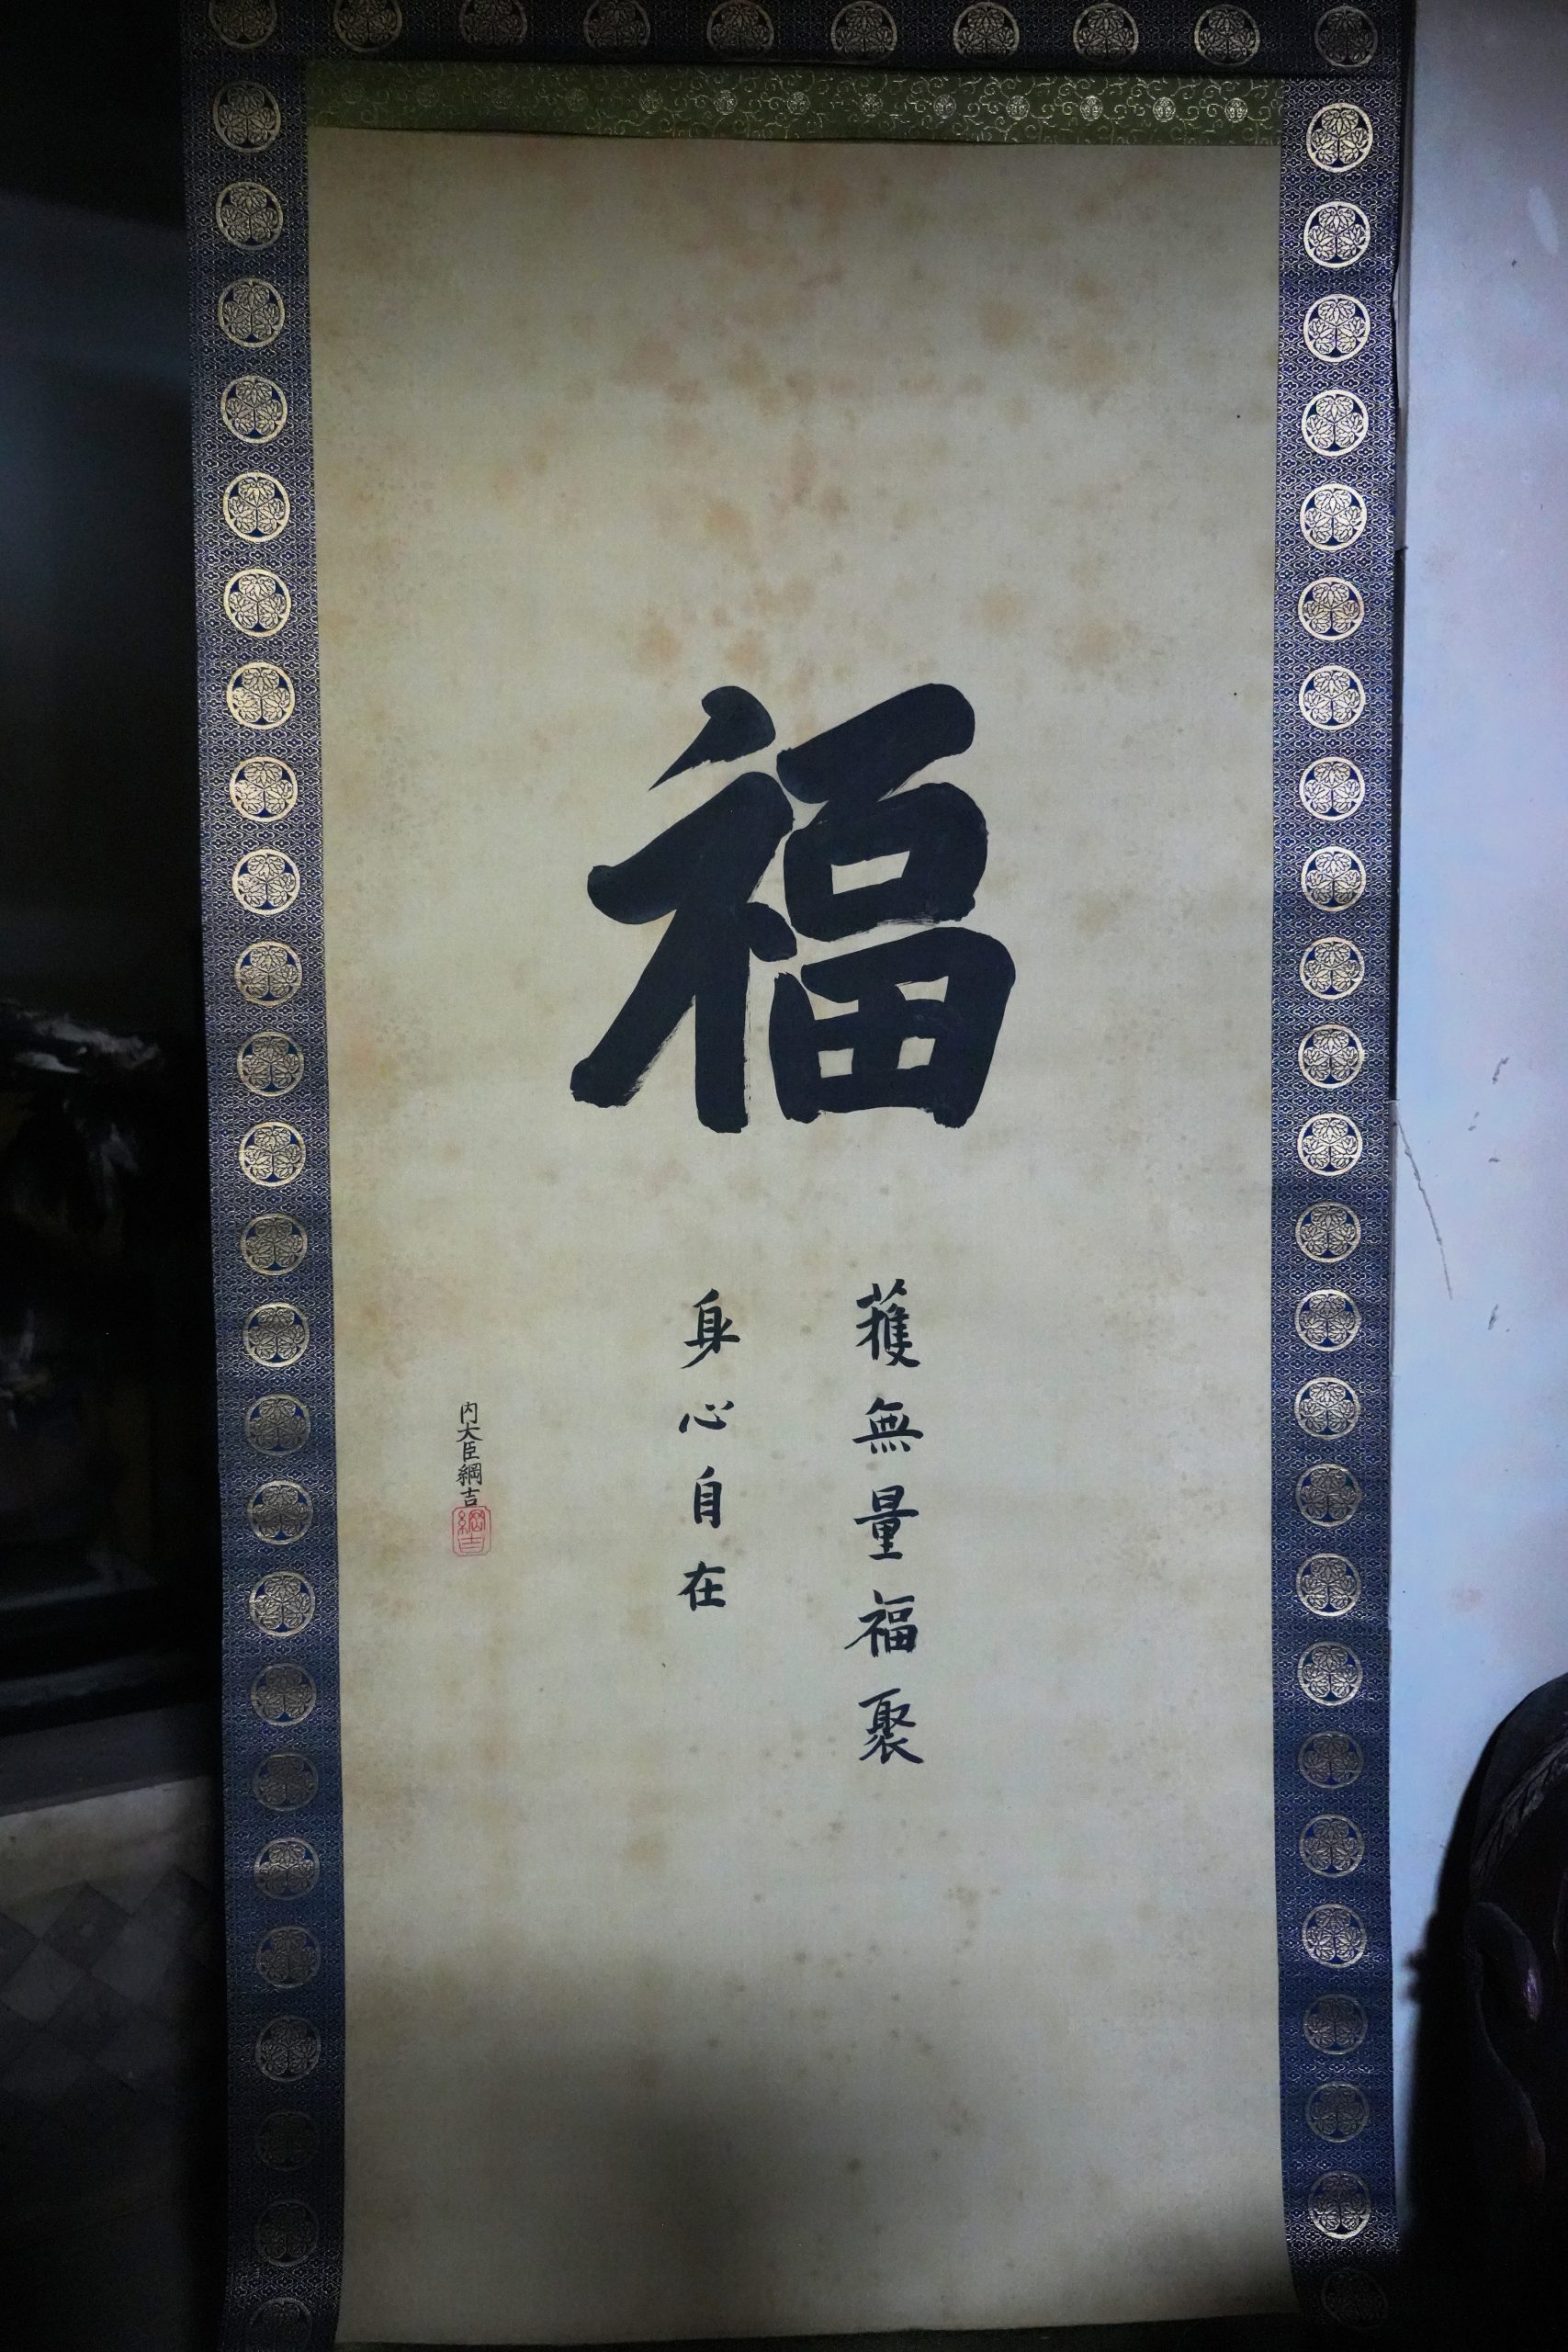 福
獲無量福聚
身心自在
内大臣綱吉
綱吉